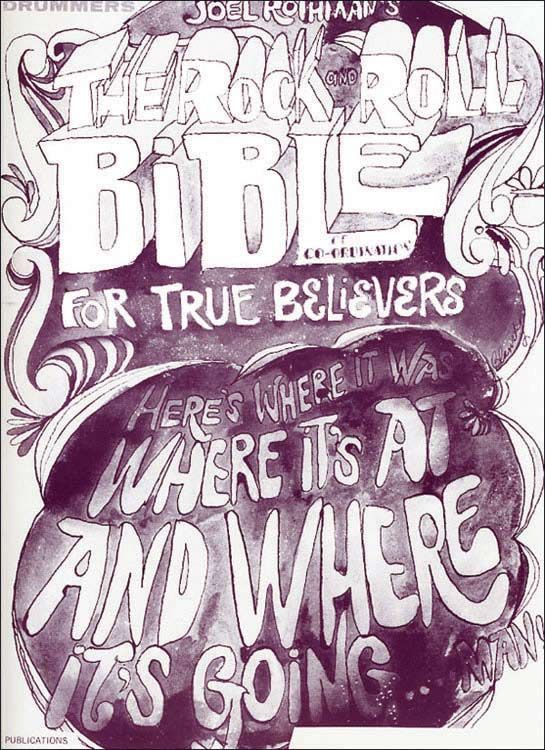 DRUMMERS
JOEL ROTHMAN'S
THE ROCK AND ROLL
BiBLE
OF
CO-ORDINATION
FOR TRUE BELiEVERS
HERE'S WHERE IT WAS
WHERE IT'S AT
AND WHERE
iT'S GOiNG... MAN!
PUBLICATIONS